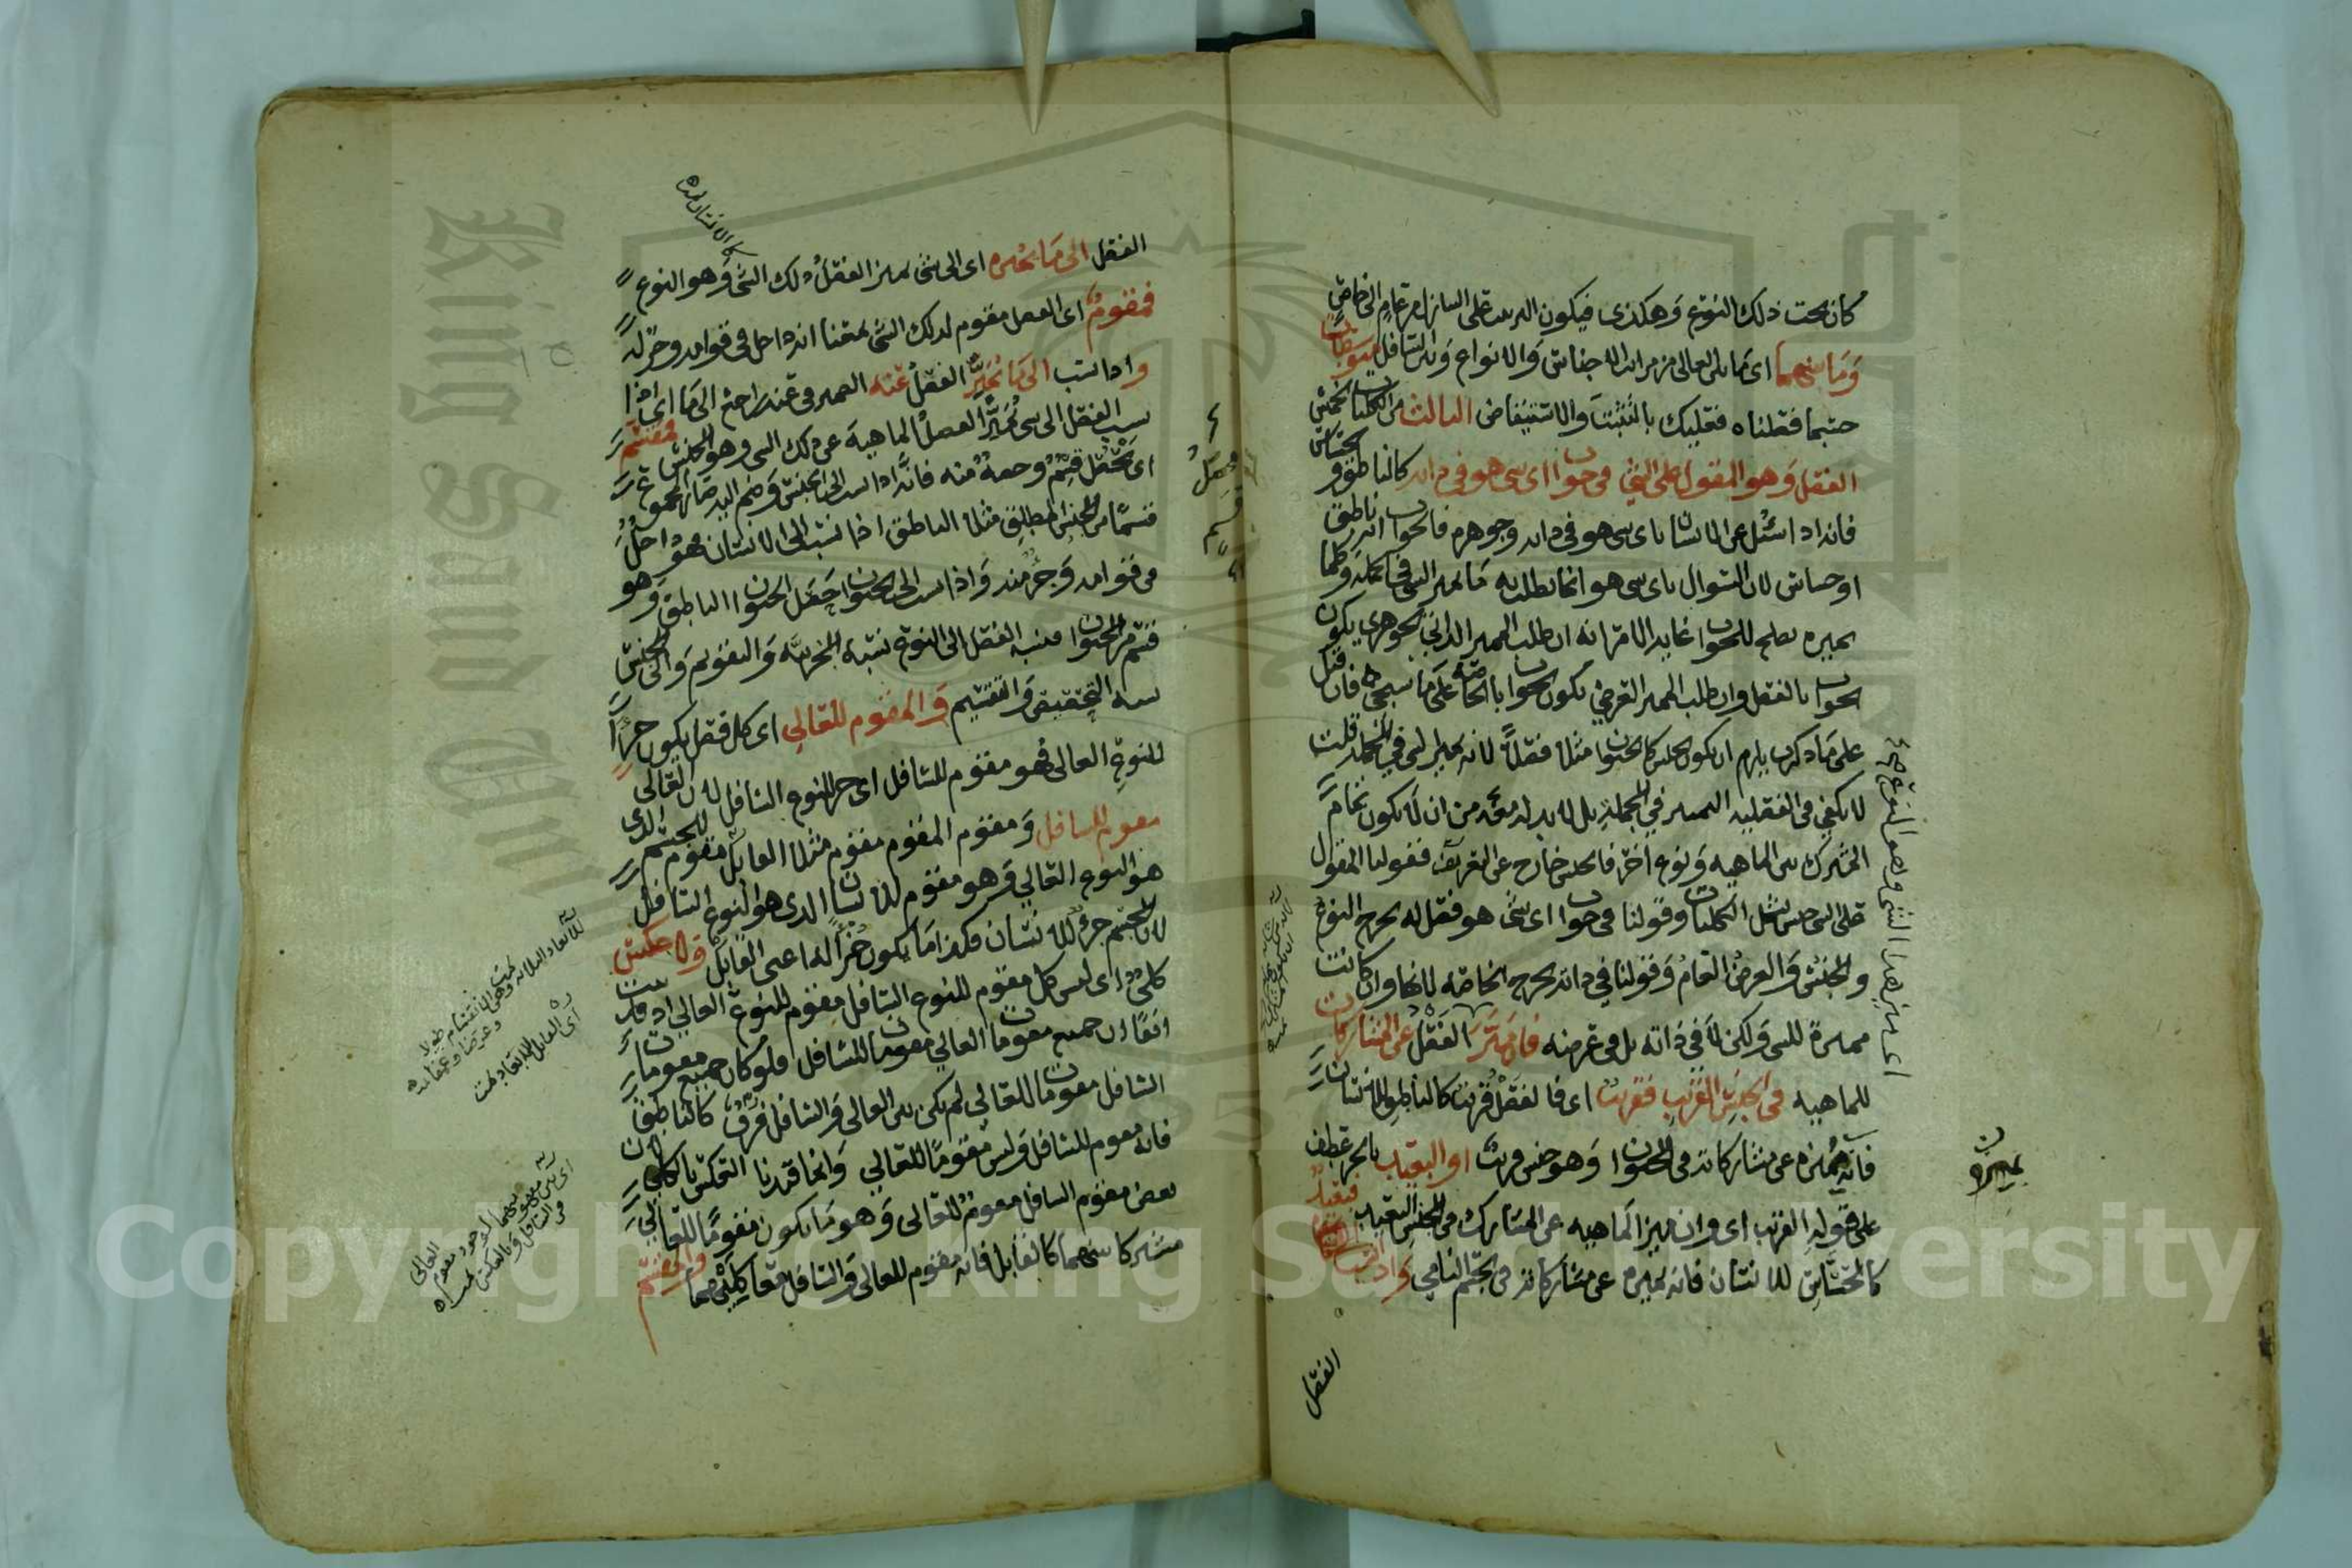 كان تحت ذلك النوع وهكذى فيكون الترتيب على التنازل من عام الى خاص
وما بينهما اى ما بين العالى من مراتب الاجناس والانواع وبين السافل متوسطات
حسبما فصلناه فعليك بالتثبت والاستيفاض الثالث من الكليات الخمس
الفصل وهو المقول على الشئ فى جواب اى شى هو فى ذاته كالناطق و حساس
فانه اذا سئل عن الانسان باى شى هو فى ذاته وجوهره فالجواب انه ناطق
او حساس لان السوال باى شى هو انما يطلب به ما يميز الشى فى الجملة وكلما
يميزه يصلح للجواب غاية الامر انه ان طلب المميز الذاتى الجوهرى يكون
الجواب بالفصل وان طلب المميز العرضي يكون الجواب بالخاصه على ما سيجى فان قيل
على ما ذكرت يلزم ان يكون الجنس كالحيوان مثلا فصلا لانه يميز الشى فى الجملة قلت
لا يكفى فى الفصلية التمييز في الجملة بل لا بد له معه من ان لا يكون تمام
المشترك بين الماهيه ونوع اخر فالجنس خارج عن التعريف فقولنا المقول
على الشى جنس يشمل الكليات وقولنا فى جواب اى شى هو فصل له يخرج النوع
والجنس والعرض العام وقولنا في ذاته يخرج الخاصه لانها وان كانت
مميزة للشى ولكن لا في ذاته بل فى عرضه فان ميز الفصل عن المشاركات
للماهيه فى الجنس القريب فقريب اى فالفصل قريب كالناطق للانسان
فانه يميزه عن مشاركاته فى الحيوان وهو جنس قريب او البعيد بالجر عطف
على قوله القريب اى وان ميز الماهيه عن المشارك فى الجنس البعيد فبعيد
كالحساس للانسان فانه يميزه عن مشاركاته فى الجسم النامي واذا نسب
الفصل
الفصل الى ما يميزه اى الى شى يميز الفصل ذلك الشى وهو النوع
فمقوم اى الفصل مقوم لذلك الشى بمعنا انه داخل فى قوامه وجز له
واذا نسب الى ما يميز الفصل عنه الضمير فى عنه راجع الى ما اى اذا
نسب الفصل الى شى يميز الفصل الماهية عن ذلك الشى وهو الجنس فمقسم
اى محصل قسم وحصة منه فانه اذا نسب الى الجنس وضم اليه صار المجموع
قسما من الجنس المطلق مثلا الناطق اذا نسب الى الانسان فهو داخل
فى قوامه وجز منه واذا نسب الى الحيوان حصل الحيوان الناطق وهو
قسم من الحيوان فنسبة الفصل الى النوع نسبة الجزئيه والتقويم والى الجنس
نسبة التحقيق والتقسيم والمقوم للعالي اى كل فصل يكون جزأ
للنوع العالى فهو مقوم للسافل اى جز للنوع السافل لان العالى
مقوم للسافل ومقوم المقوم مقوم مثلا القابل مقوم للجسم الذى
هو النوع العالي وهو مقوم للانسان الذى هو النوع السافل
لان الجسم جزء للانسان فكذا ما يكون جزأ له اعنى القابل ولا عكس
كلى اى ليس كل مقوم للنوع السافل مقوم للنوع العالى اذ قد ثبت
انفا ان جميع مقومات العالي مقومات للسافل فلو كان جميع مقومات
السافل مقومات للعالي لم يكن بين العالى والسافل فرق كالناطق
فانه مقوم للسافل وليس مقوما للعالي وانما قيدنا العكس بالكلى لان
بعض مقوم السافل مقوم للعالى وهو ما يكون مقوما للعالي
مشتركا بينهما كالقابل فانه مقوم للعالى والسافل معا كليهما والمقسم